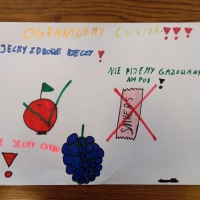 OGRANICZMY CUKIER!!!
JECMY ZDROWE RZECZY!
NIE PIJEMY GAZOWANY
NAPOI!
SNIKERS
JECMY CUKRU
!